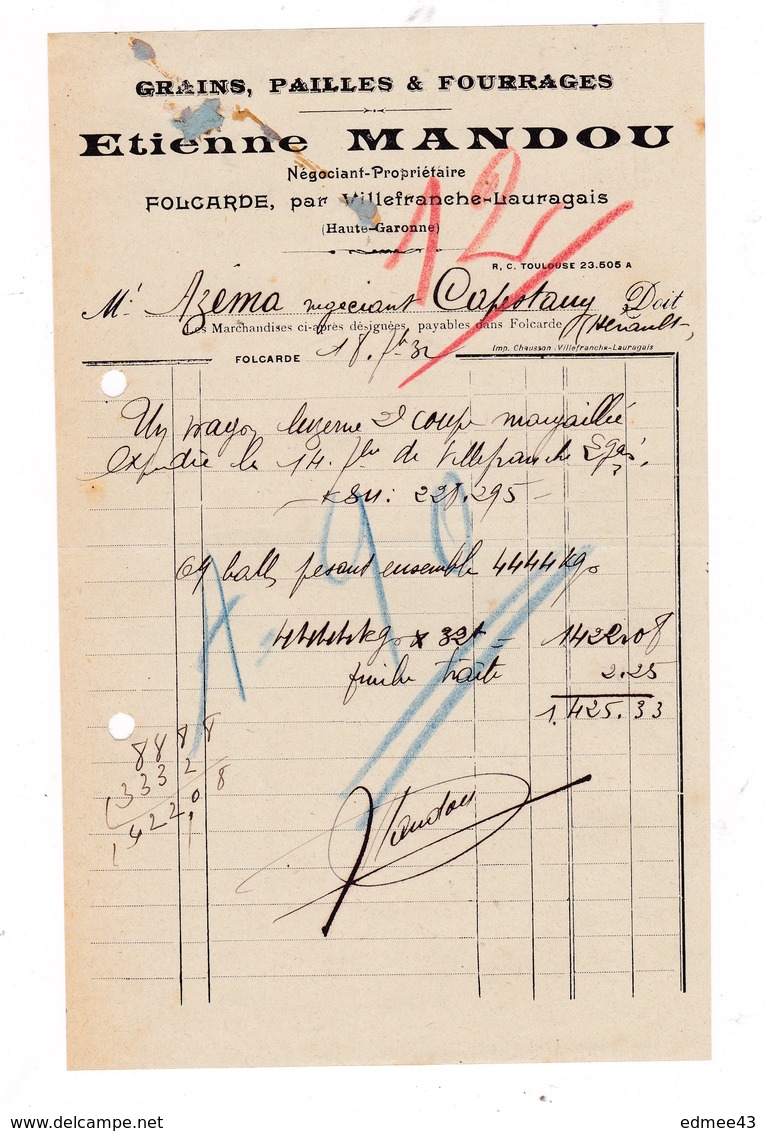 GRAINS, PAILLES & FOURRAGES
Etienne MANDOU
Négociant-Propriétaire
FOLCARDE, par Villefranche-Lauragais
(Haute-Garonne)
12
R. C. TOULOUSE 23.505 A
Mr Azéma negociant Capestang Doit
Les Marchandises ci-après désignées, payables dans Folcarde (Hérault)
FOLCARDE 18. 32
Imp. Chausson - Villefranche-Lauragais
Un wagon luzerne 2e coupe
Expédié le 14. de Villefranche Lgais,
228.295
A-90
69 balles pesant ensemble 4444 kgs
4444 kgs x 32f = 1422.08
timbre traite 2.25
1.425.33
8888
13332
1422.08
Mandou
edmee43